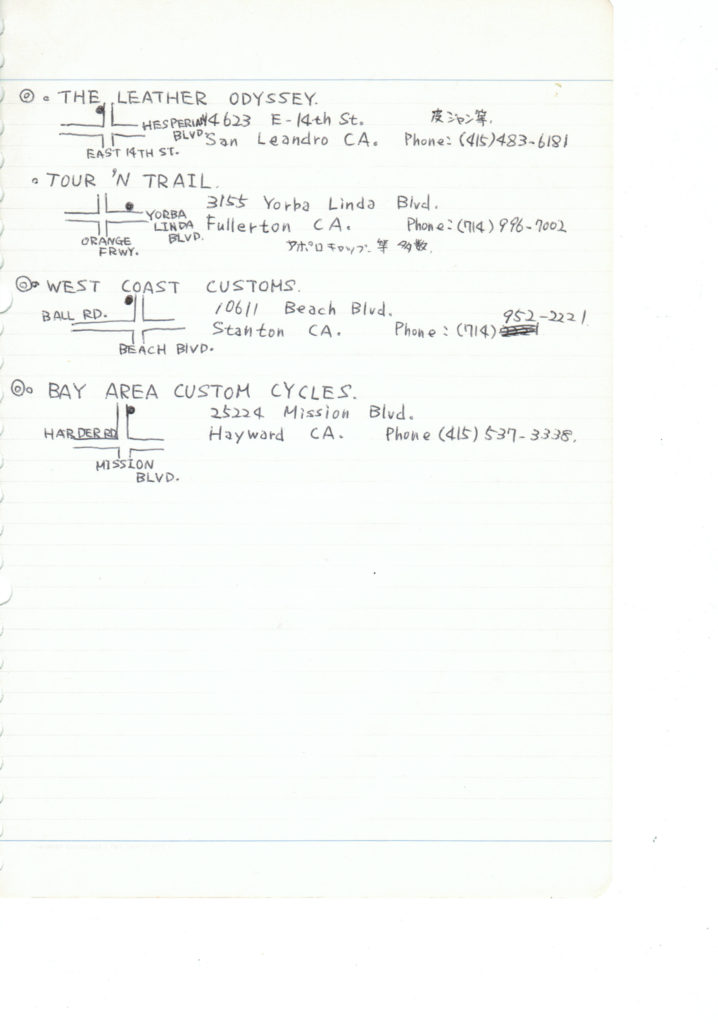 ◎ • THE LEATHER ODYSSEY.
HESPERIAN BLVD. 14623 E-14th St. 皮ジャン等.
San Leandro CA. Phone: (415) 483-6181
EAST 14TH ST.
• TOUR 'N TRAIL.
3155 Yorba Linda Blvd.
YORBA LINDA BLVD. Fullerton CA. Phone: (714) 996-7002
ORANGE FRWY. アポロキャップ等 多数.
◎ • WEST COAST CUSTOMS.
BALL RD. 10611 Beach Blvd.
Stanton CA. Phone: (714) 952-2221
BEACH BLVD.
◎ • BAY AREA CUSTOM CYCLES.
25224 Mission Blvd.
HARDER RD Hayward CA. Phone (415) 537-3338.
MISSION
BLVD.